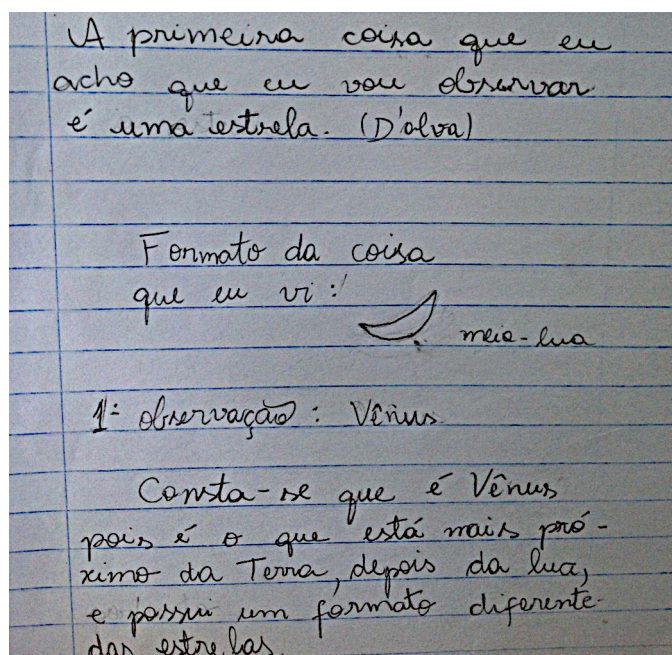 A primeira coisa que eu
acho que eu vou observar
é uma estrela. (D'alva)
Formato da coisa
que eu vi:
meia-lua
1ª observação: Vênus
Consta-se que é Vênus
pois é o que está mais pró-
ximo da Terra, depois da lua,
e possui um formato diferente
das estrelas.